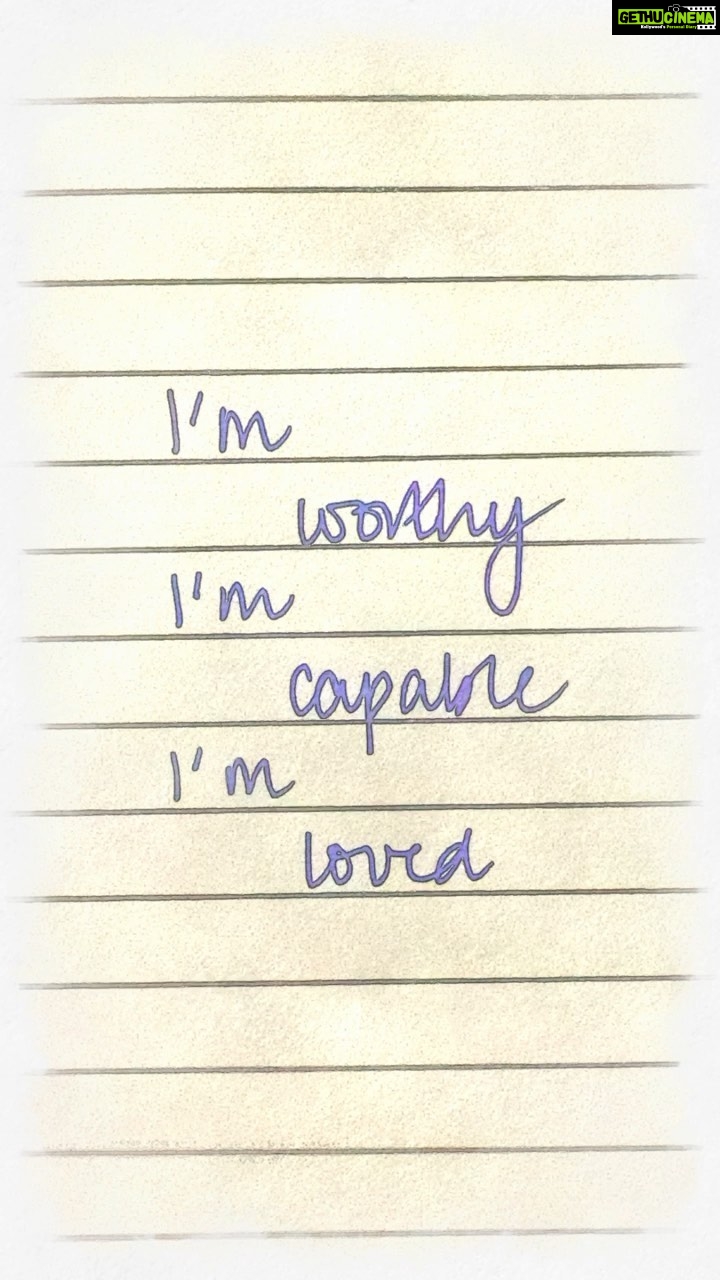 GETHUCINEMA
Kollywood's Personal Diary
I'm
worthy
I'm
capable
I'm
loved